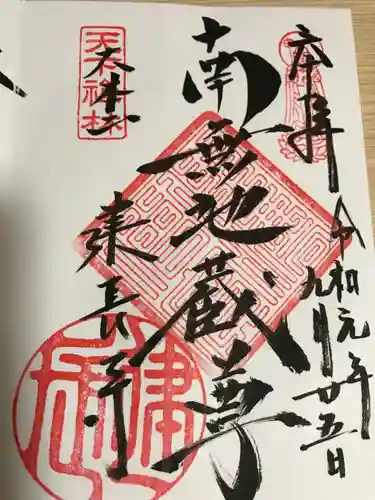 奉拝
令和元年
九月廿五日
南無地蔵尊
天下禅林
大本山
建長寺